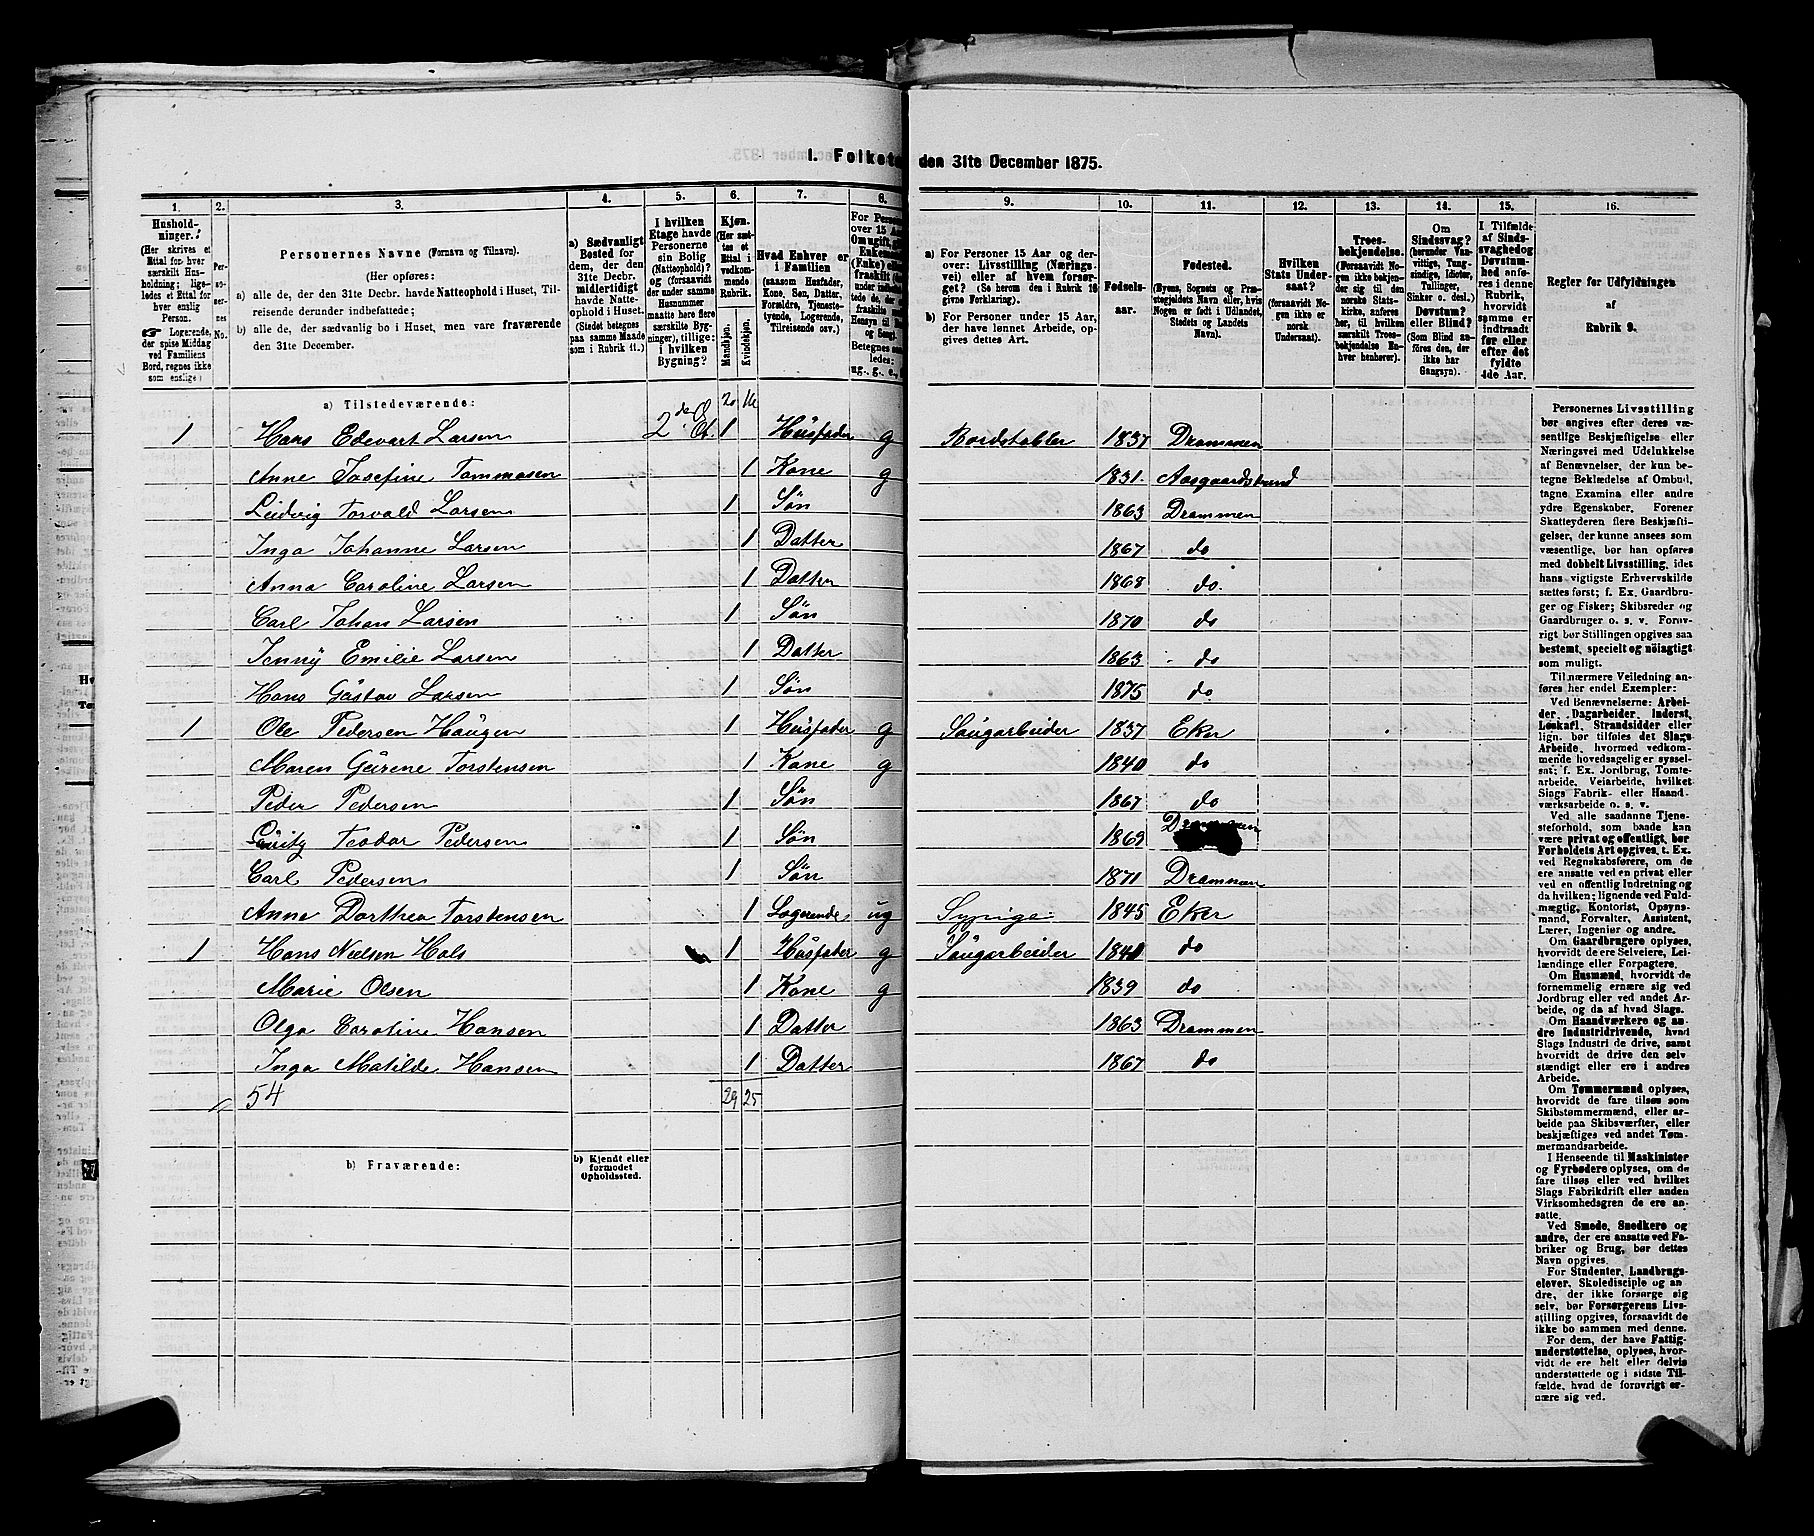 I. Folketæ den 31te December 1875.
1. 2. 3. 4. 5. 6. 7. 8. 9. 10. 11. 12. 13. 14. 15. 16.
Husholdninger.
(Her skrives et Ettal for hver særskilt Husholdning; ligeledes et Ettal for hver enslig Person.
☞ Logerende, der spise Middag ved Familiens Bord, regnes ikke som enslige)
Personernes No.
Personernes Navne (Fornavn og Tilnavn).
(Her opføres:
a) alle de, der den 31te Decbr. havde Natteophold i Huset, Tilreisende derunder indbefattede;
b) alle de, der sædvanlig bo i Huset, men vare fraværende den 31te December.
a) Sædvanligt Bosted for dem, der den 31te Decbr. midlertidigt havde Natteophold i Huset.
(Stedet betegnes paa samme Maade som i Rubrik 11.)
I hvilken Etage havde Personerne sin Bolig (Natteophold)? og (forsaavidt der under samme Husnummer maatte høre flere særskilte Bygninger), tillige: i hvilken Bygning?
Kjøn.
(Her sættes et Ettal i vedkommende Rubrik.
Mandkjøn. Kvindekjøn.
Hvad Enhver er i Familien
(saasom Husfader, Kone, Søn, Datter, Forældre, Tjenestetyende, Logerende, Tilreisende osv.)
a) For Personer 15 Aar og derover: Livsstilling (Næringsvei) eller af hvem forsørget? (Se herom den i Rubrik 16 givne Forklaring).
b) For Personer under 15 Aar, der have lønnet Arbeide, opgives dettes Art.
Fødselsaar.
Fødested.
(Byens, Sognets og Præstegjeldets Navn eller, hvis Nogen er født i Udlandet, Stedets og Landets Navn).
Hvilken Stats Undersaat?
(forsaavidt Nogen ikke er norsk Undersaat).
Troesbekjendelse.
(Forsaavidt Nogen ikke bekjender sig til den norske Statskirke, anføres her, til hvilken særskilt Troesbekjendelse Enhver henhører).
Om Sindssvag? (herunder Vanvittige, Tungsindige, Idioter, Tullinger, Sinker o. desl.) Døvstum? eller Blind? (Som Blind anføres den, der ikke har Gangsyn).
I Tilfælde af Sindssvaghed og Døvstumhed anføres i denne Rubrik, hvorvidt samme er indtraadt før eller efter det fyldte 4de Aar.
Regler for Udfyldningen
af
Rubrik 9.
a) Tilstedeværende: 20 14
1 Hans Edevart Larsen 2de Et. 1 Husfader g Bordstabler 1837 Drammen
Anne Josefine Tommasen 1 Kone g 1831. Aasgaardstrand
Ludvig Torvald Larsen 1 Søn 1863 Drammen
Inga Johanne Larsen 1 Datter 1867 do
Anna Caroline Larsen 1 Datter 1868 do.
Carl Johan Larsen 1 Søn 1870 do
Jenny Emilie Larsen 1 Datter 1863 do
Hans Gustav Larsen 1 Søn 1875 do
1 Ole Pedersen Haugen 1 Husfader g Saugarbeider 1837 Eker
Maren Torstensen 1 Kone g 1840 do
Peder Pedersen 1 Søn 1867 do
Teodor Pedersen 1 Søn 1869 Drammen
Carl Pedersen 1 Søn 1871 Drammen
Anne Dorthea Torstensen 1 Logerende ug Sypige 1845 Eker
1 Hans Nielsen Hals 1 Husfader g Saugarbeider 1840 do
Marie Olsen 1 Kone g 1839 do
Olga Caroline Hansen 1 Datter 1863 Drammen
Inga Matilde Hansen 1 Datter 1867 do
54 29 25
b) Fraværende: b) Kjendt eller formodet Opholdssted.
Personernes Livsstilling
bør angives efter deres væ-
sentlige Beskjæftigelse eller
Næringsvei med Udelukkelse
af Benævnelser, der kun be-
tegne Beklædelse af Ombud,
tagne Examina eller andre
ydre Egenskaber. Forener
Skatteyderen flere Beskjæfti-
gelser, der kunne ansees som
væsentlige, bør han opføres
med dobbelt Livsstilling, idet
hans vigtigste Erhvervskilde
sættes først; f. Ex. Gaardbru-
ger og Fisker; Skibsreder og
Gaardbruger o. s. v. Forøv-
rigt bør Stillingen opgives saa
bestemt, specielt og nøiagtigt
som muligt.
Til nærmere Veiledning an-
føres her endel Exempler:
Ved Benævnelserne: Arbei-
der, Dagarbeider, Inderst,
Løskarl, Strandsidder eller
lign. bør tilføies det Slags
Arbeide, hvormed vedkom-
mende hovedsagelig er syssel-
sat; f. Ex. Jordbrug, Tomte-
arbeide, Veiarbeide, hvilket
Slags Fabrik- eller Haand-
værksarbeide o. s. v.
Ved alle saadanne Tjene-
steforhold, som baade kan
være privat og offentligt, bør
Forholdets Art opgives, t. Ex.
ved Regnskabsførere, om de
ere ansatte ved en privat eller
ved en offentlig Indretning og
da hvilken; lignende ved Fuld-
mægtig, Kontorist, Opsyns-
mand, Forvalter, Assistent,
Lærer, Ingeniør og andre.
Om Gaardbrugere oplyses,
hvorvidt de ere Selveiere, Lei-
lændinge eller Forpagtere.
Om Husmænd, hvorvidt de
fornemmelig ernære sig ved
Jordbrug eller ved andet Ar-
beide, og da af hvad Slags.
Om Haandværkere og an-
dre Industridrivende, hvad
Slags Industri de drive, samt
hvorvidt de drive den selv-
stændigt eller ere i andres
Arbeide.
Om Tømmermænd oplyses,
hvorvidt de fare tilsøs som
Skibstømmermænd, eller ar-
beide paa Skibsværfter, eller
beskjæftiges ved andet Tøm-
mermandsarbeide.
I Henseende til Maskinister
og Fyrbødere oplyses, om de
fare tilsøs eller ved hvilket
Slags Fabrikdrift eller anden
Virksomhedsgren de ere an-
satte.
Ved Smede, Snedkere og
andre, der ere ansatte ved Fa-
briker og Brug, bør dettes
Navn opgives.
For Studenter, Landbrugs-
elever, Skoledisciple og an-
dre, der ikke forsørge sig
selv, bør Forsørgerens Livs-
stilling opgives, forsaavidt de
ikke bo sammen med denne.
For dem, der have Fattig-
understøttelse, oplyses, hvor-
vidt de ere helt eller delvis
understøttede og i sidste Til-
fælde, hvad de forøvrigt er-
nære sig ved.